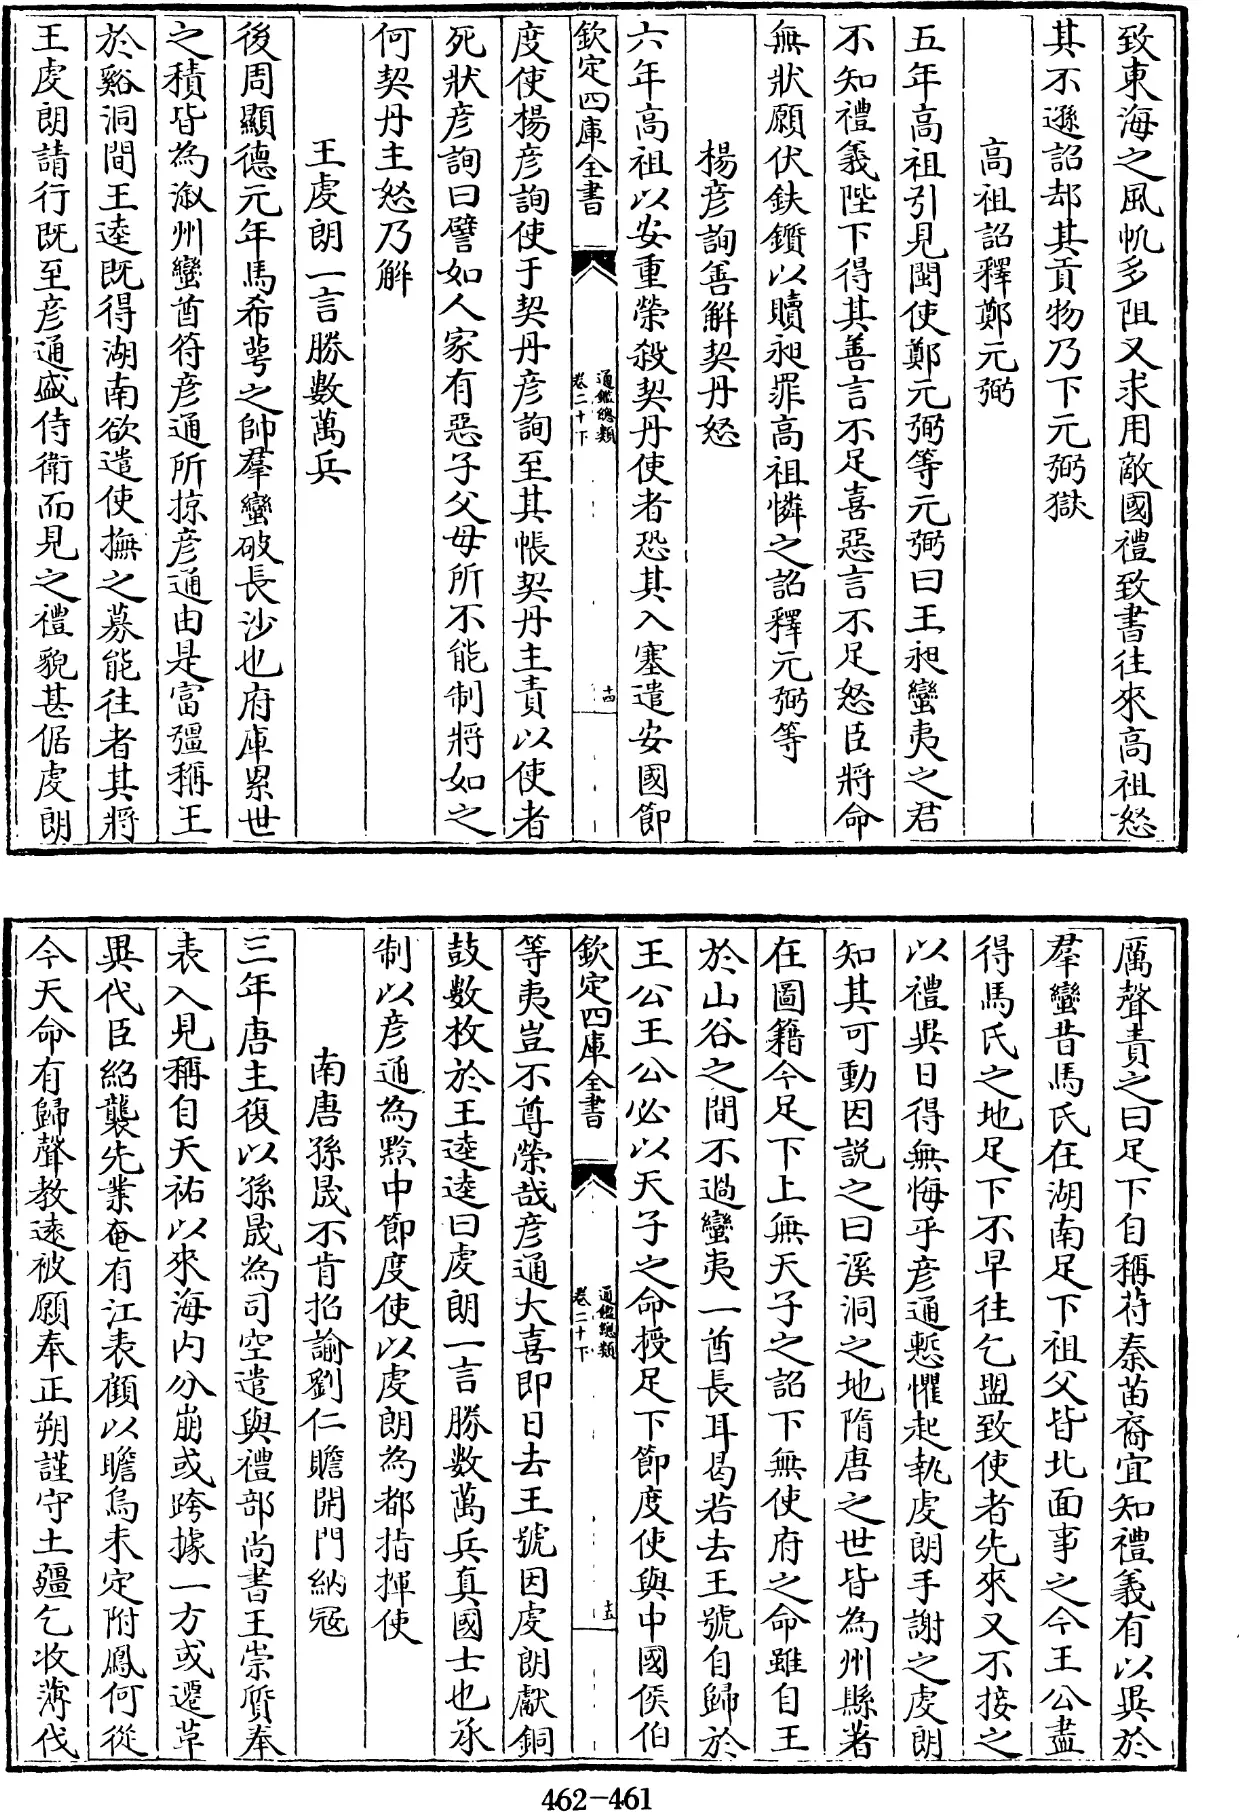 致東海之風帆多阻又求用敵國禮致書往來高祖怒
其不遜詔却其貢物乃下元弼獄
高祖詔釋鄭元弼
五年高祖引見閩使鄭元弼等元弼曰王昶蠻夷之君
不知禮義陛下得其善言不足喜惡言不足怒臣將命
無狀願伏鈇鑕以贖昶罪高祖憐之詔釋元弼等
楊彦詢善解契丹怒
六年高祖以安重榮殺契丹使者恐其入塞遣安國節
欽定四庫全書
通鑑總類
卷二十下
十四
度使楊彦詢使于契丹彦詢至其帳契丹主責以使者
死狀彦詢曰譬如人家有惡子父母所不能制將如之
何契丹主怒乃解
王䖍朗一言勝數萬兵
後周顯德元年馬希萼之帥羣蠻破長沙也府庫累世
之積皆為溆州蠻酋符彦通所掠彦通由是富彊稱王
於谿洞間王逵既得湖南欲遣使撫之募能往者其將
王䖍朗請行既至彦通盛侍衛而見之禮貌甚倨䖍朗
厲聲責之曰足下自稱苻秦苗裔宜知禮義有以異於
羣蠻昔馬氏在湖南足下祖父皆北面事之今王公盡
得馬氏之地足下不早往乞盟致使者先來又不接之
以禮異日得無悔乎彦通慙懼起執䖍朗手謝之䖍朗
知其可動因説之曰溪洞之地隋唐之世皆為州縣著
在圖籍今足下上無天子之詔下無使府之命雖自王
於山谷之間不過蠻夷一酋長耳曷若去王號自歸於
王公王公必以天子之命授足下節度使與中國侯伯
欽定四庫全書
通鑑總類
卷二十下
十五
等夷豈不尊榮哉彦通大喜即日去王號因䖍朗獻銅
鼓數枚於王逵逵曰䖍朗一言勝數萬兵真國士也承
制以彦通為黔中節度使以䖍朗為都指揮使
南唐孫晟不肯招諭劉仁贍開門納冦
三年唐主復以孫晟為司空遣與禮部尚書王崇質奉
表入見稱自天祐以來海内分崩或跨據一方或遷革
異代臣紹襲先業奄有江表顧以瞻烏未定附鳳何從
今天命有歸聲教遠被願奉正朔謹守土疆乞收薄伐
462-461